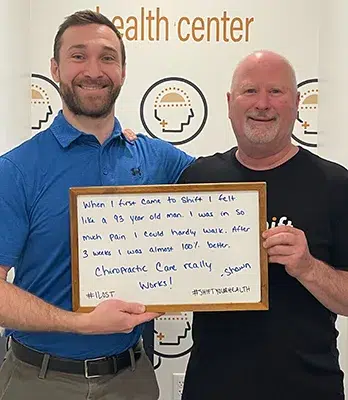 health center
When I first came to Shift I felt
like a 93 year old man. I was in so
much pain I could hardly walk. After
3 weeks I was almost 100% better.
Chiropractic Care really
Works!
-Shawn
#1LOST
#SHIFTYOURHEALTH